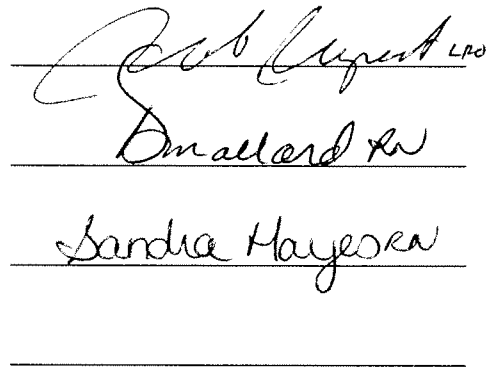 LPO
Dmallard RN
Sandra Hayes RN